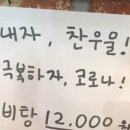 내자, 찬우물!
극복하자, 코로나!
비탕 12,000원